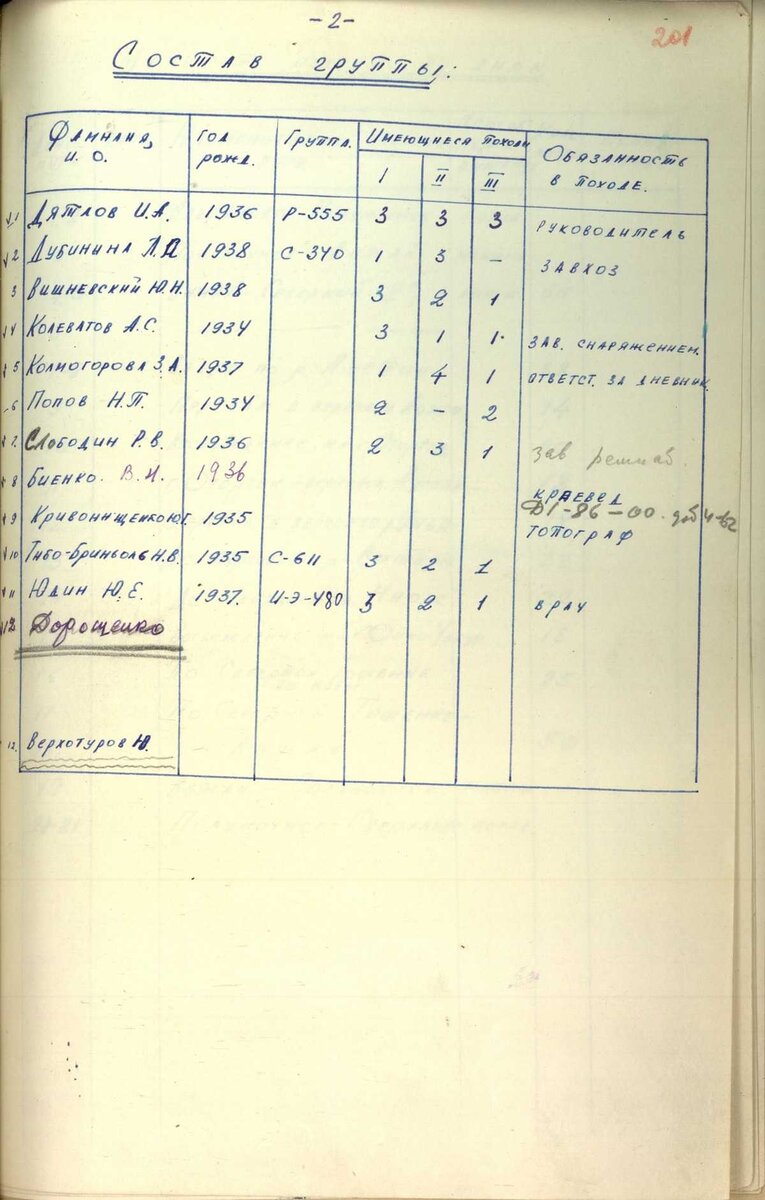 -2-
201
Состав группы:
Фамилия, и. о. Год рожд. Группа. Имеющиеся походы Обязанность в походе.
I II III
1 Дятлов И.А. 1936 Р-555 3 3 3 руководитель
2 Дубинина Л.А 1938 С-340 1 3 – завхоз
3 Вишневский Ю.Н. 1938 3 2 1
4 Колеватов А.С. 1934 3 1 1. зав. снаряжением.
5 Колмогорова З.А. 1937 1 4 1 ответст. за дневник.
6 Попов Н.П. 1934 2 – 2
7. Слободин Р.В. 1936 2 3 1 зав ремнаб.
8 Биенко. В. 1936 краевед
Д1-86-00. доб 4-62
9 Кривонищенко Ю.Г. 1935 топограф
10 Тибо-Бриньоль Н.В. 1935 С-611 3 2 1
11 Юдин Ю.Е. 1937. И-Э-480 3 2 1 врач
12 Дорошенко
12. Верхотуров Ю.